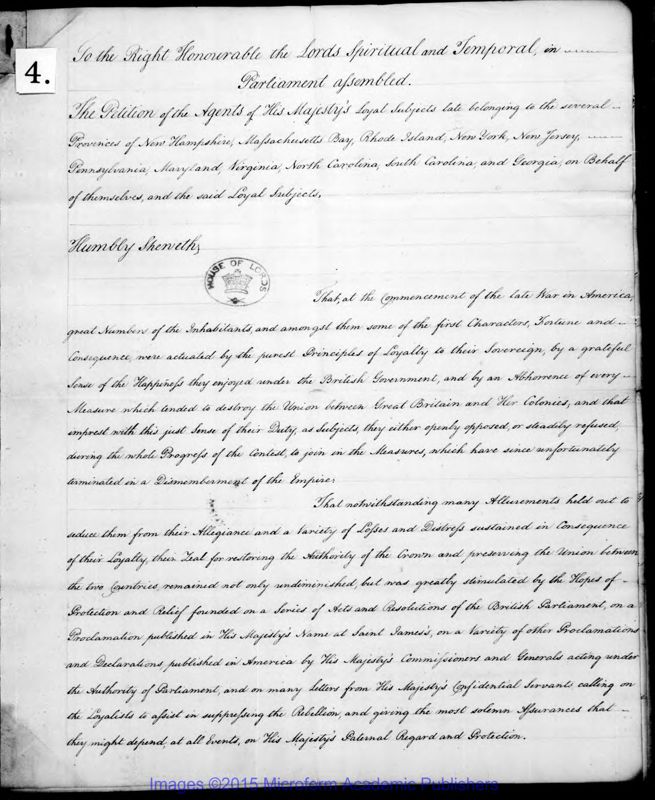 4.
To the Right Honourable the Lords Spiritual and Temporal, in
Parliament assembled.
The Petition of the Agents of His Majesty's Loyal Subjects late belonging to the several
Provinces of New Hampshire, Massachusetts Bay, Rhode Island, New York, New Jersey,
Pennsylvania, Maryland, Virginia, North Carolina, South Carolina, and Georgia, on Behalf
of themselves, and the said Loyal Subjects,
Humbly Sheweth,
HOUSE OF LORDS
That, at the Commencement of the late War in America,
great Numbers of the Inhabitants, and amongst them some of the first Characters, Fortune and
Consequence, were actuated by the purest Principles of Loyalty to their Sovereign, by a grateful
Sense of the Happiness they enjoyed under the British Government, and by an Abhorrence of every
Measure which tended to destroy the Union between Great Britain and Her Colonies, and that
imprest with this just Sense of their Duty, as Subjects, they either openly opposed, or steadily refused,
during the whole Progress of the Contest, to join in the Measures, which have since unfortunately
terminated in a Dismemberment of the Empire;
That notwithstanding many Allurements held out to
seduce them from their Allegiance and a Variety of Losses and Distress sustained in Consequence
of their Loyalty, their Zeal for restoring the Authority of the Crown and preserving the Union between
the two Countries, remained not only undiminished, but was greatly stimulated by the Hopes of
Protection and Relief founded on a Series of Acts and Resolutions of the British Parliament, on a
Proclamation published in His Majesty's Name at Saint James's, on a Variety of other Proclamations
and Declarations, published in America by His Majesty's Commissioners and Generals acting under
the Authority of Parliament, and on many Letters from His Majesty's Confidential Servants calling on
the Loyalists to assist in suppressing the Rebellion, and giving the most solemn Assurances that
they might depend, at all Events, on His Majesty's Paternal Regard and Protection.
Images ©2015 Microform Academic Publishers